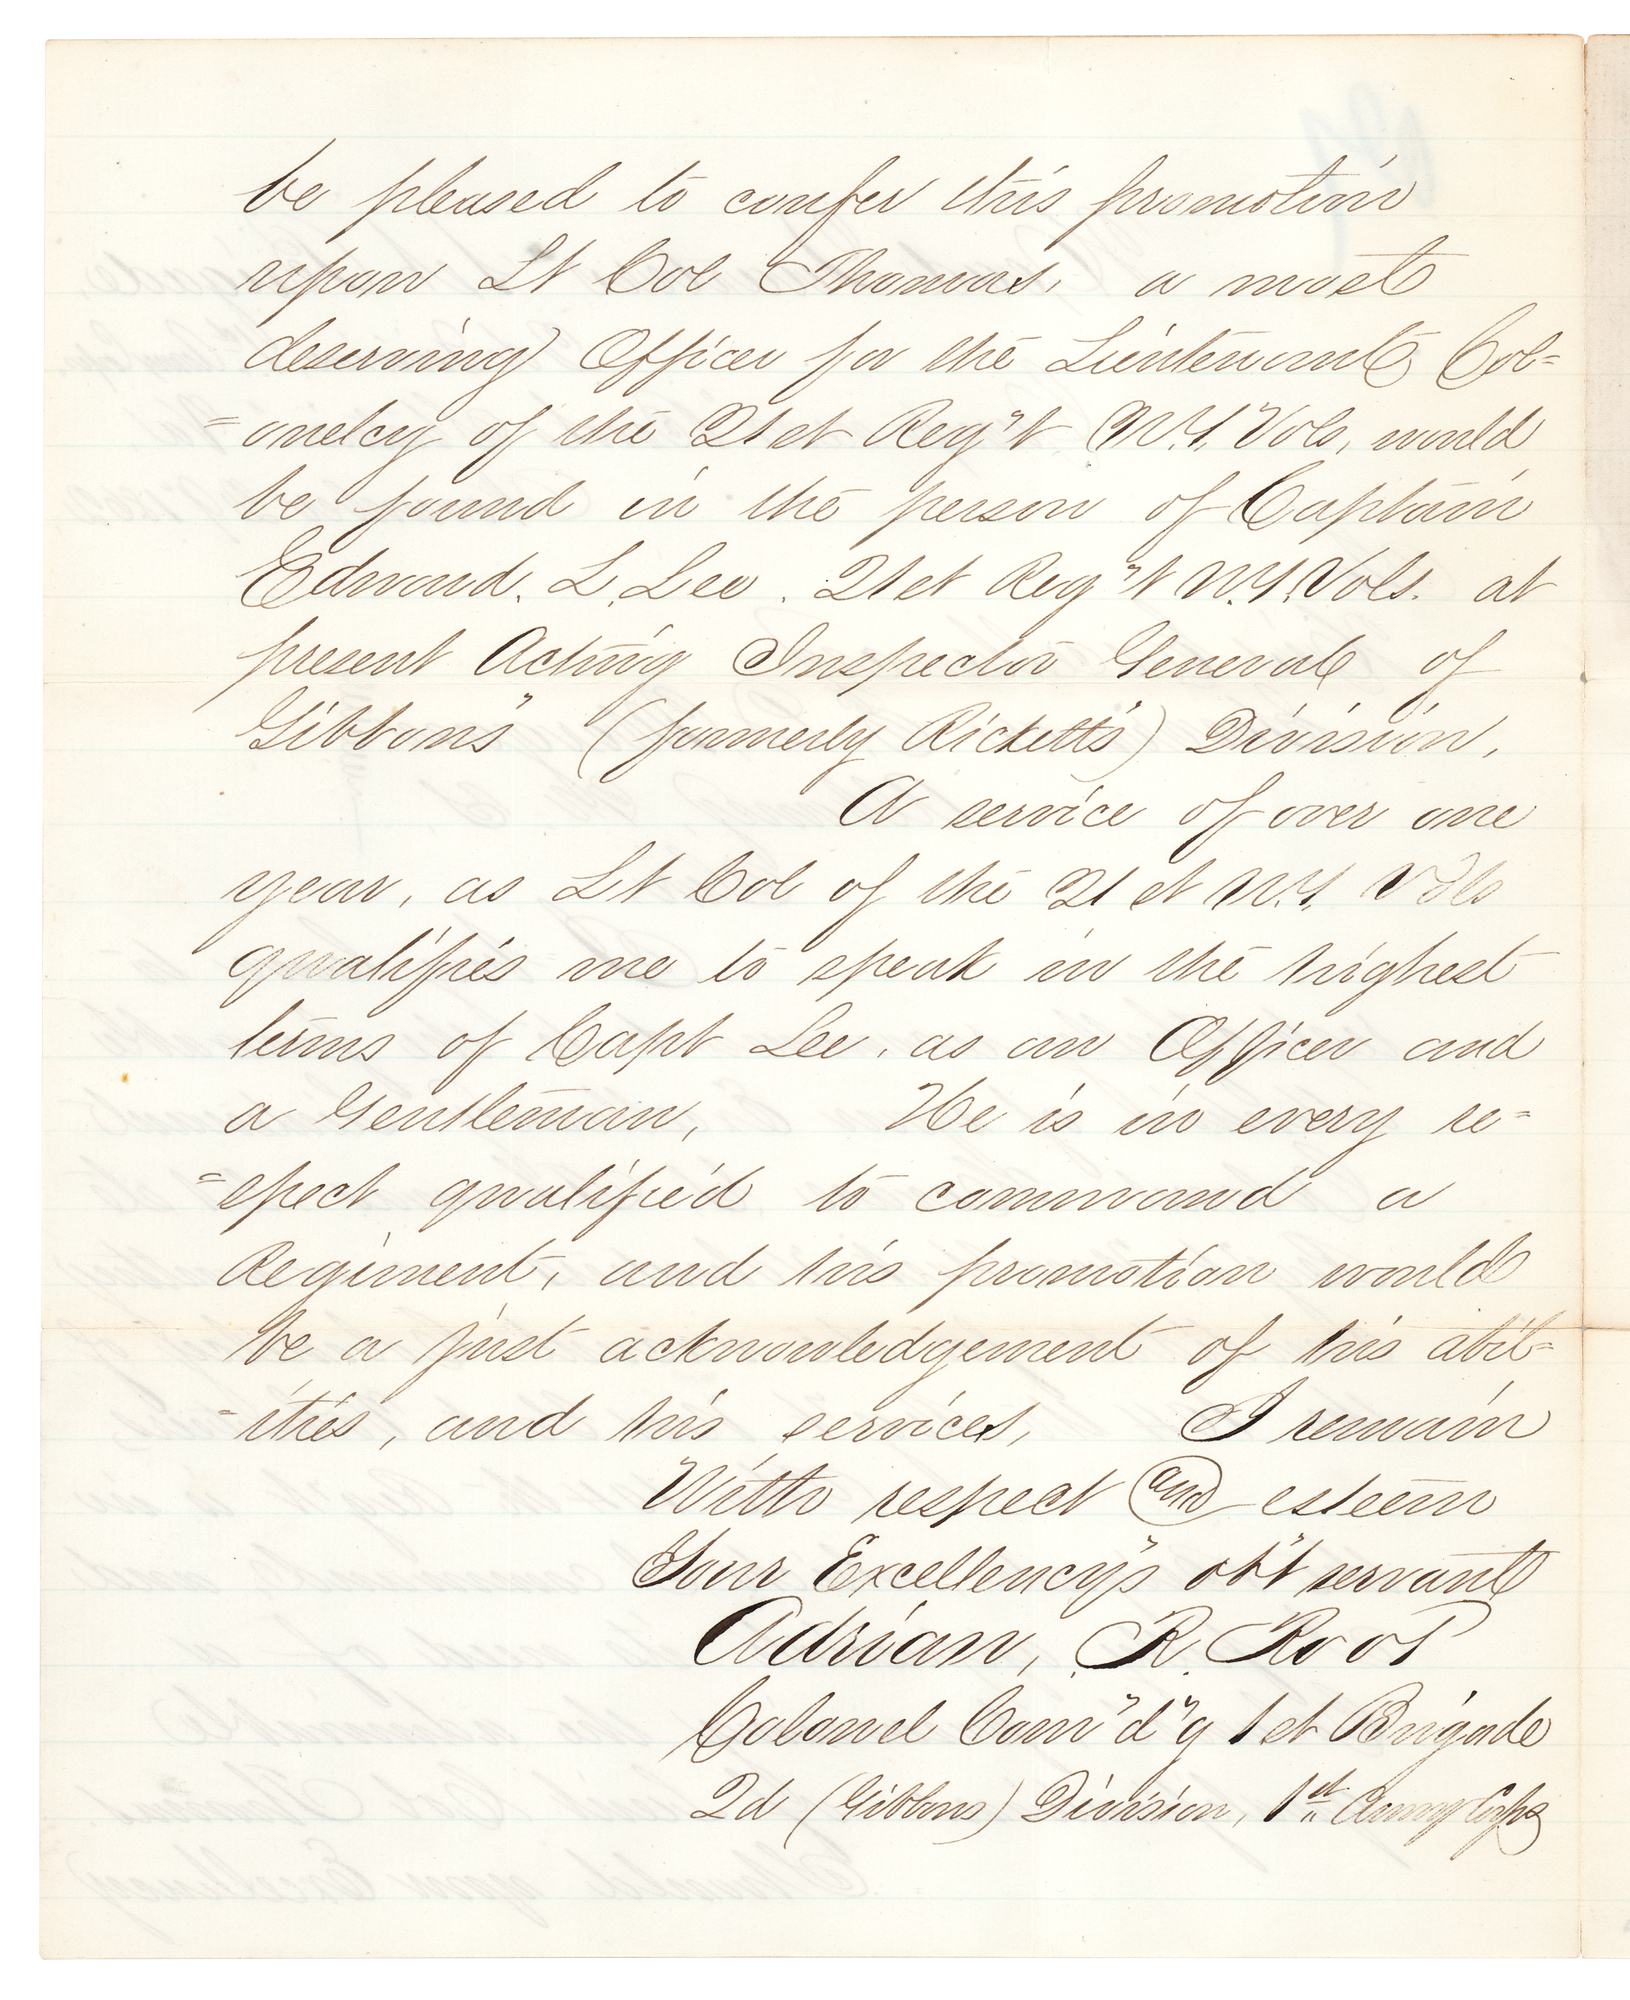 be pleased to confer this promotion
upon Lt Col Thomas, a most
deserving Officer for the Lieutenant Col=
=onelcy of the 21st Reg"t N.Y. Vols, would
be found in the person of Captain
Edmund. L. Lee. 21st Reg"t N.Y. Vols. at
present Acting Inspector General of
Gibbons" (formerly Ricketts') Division,
A service of over one
year, as Lt Col of the 21st N.Y. Vols
qualifies me to speak in the highest
terms of Capt Lee, as an Officer and
a Gentleman, He is in every re=
=spect qualified to command a
Regiment, and his promotion would
be a just acknowledgement of his abil=
=ities, and his services, I remain
With respect and esteem
Your Excellency's ob't servant
Adrian, R. Root
Colonel Com"d"g 1st Brigade
2d (Gibbons) Division, 1st Army Corps